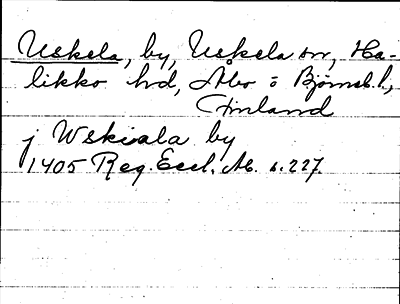 Uskela, by, Uskela sn, Ha-
likko hd, Åbo o Björneb. l.,
Finland
j Wskiala by
1405 Reg. Eccl. Ab. s. 227.